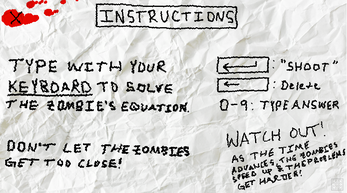 INSTRUCTIONS
TYPE WITH YOUR
KEYBOARD TO SOLVE
THE ZOMBIE'S EQUATION.
: "SHOOT"
: Delete
0-9: TYPE ANSWER
DON'T LET THE ZOMBIES
GET TOO CLOSE!
WATCH OUT!
AS THE TIME
ADVANCES, THE ZOMBIES
SPEED UP & THE PROBLEMS
GET HARDER!